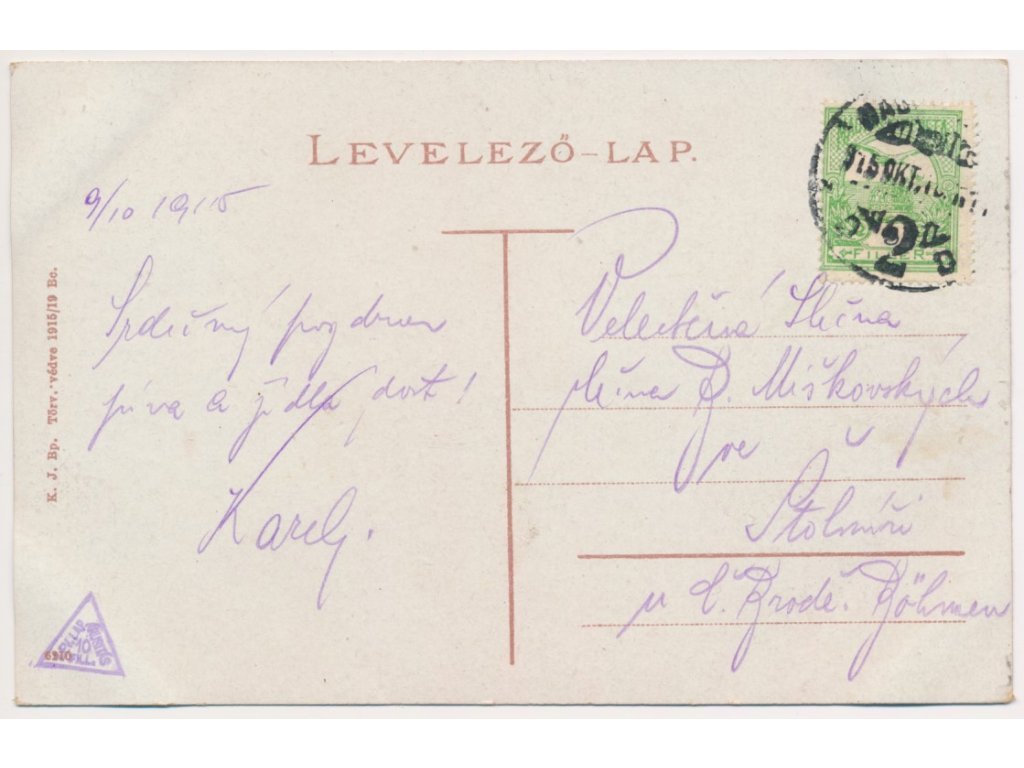 LEVELEZŐ-LAP.
9/10 1915
Srdečný pozdrav
píva a jídla dost!
Karel.
Velectěná Slečna
slečna B. Miškovských
ve
Štolmíři
u Č. Brodě. Böhmen
K. J. Bp. Törv. védve 1915/19 Bc.
915 OKT. 10.
FILLÉR
10
FILL.
6210